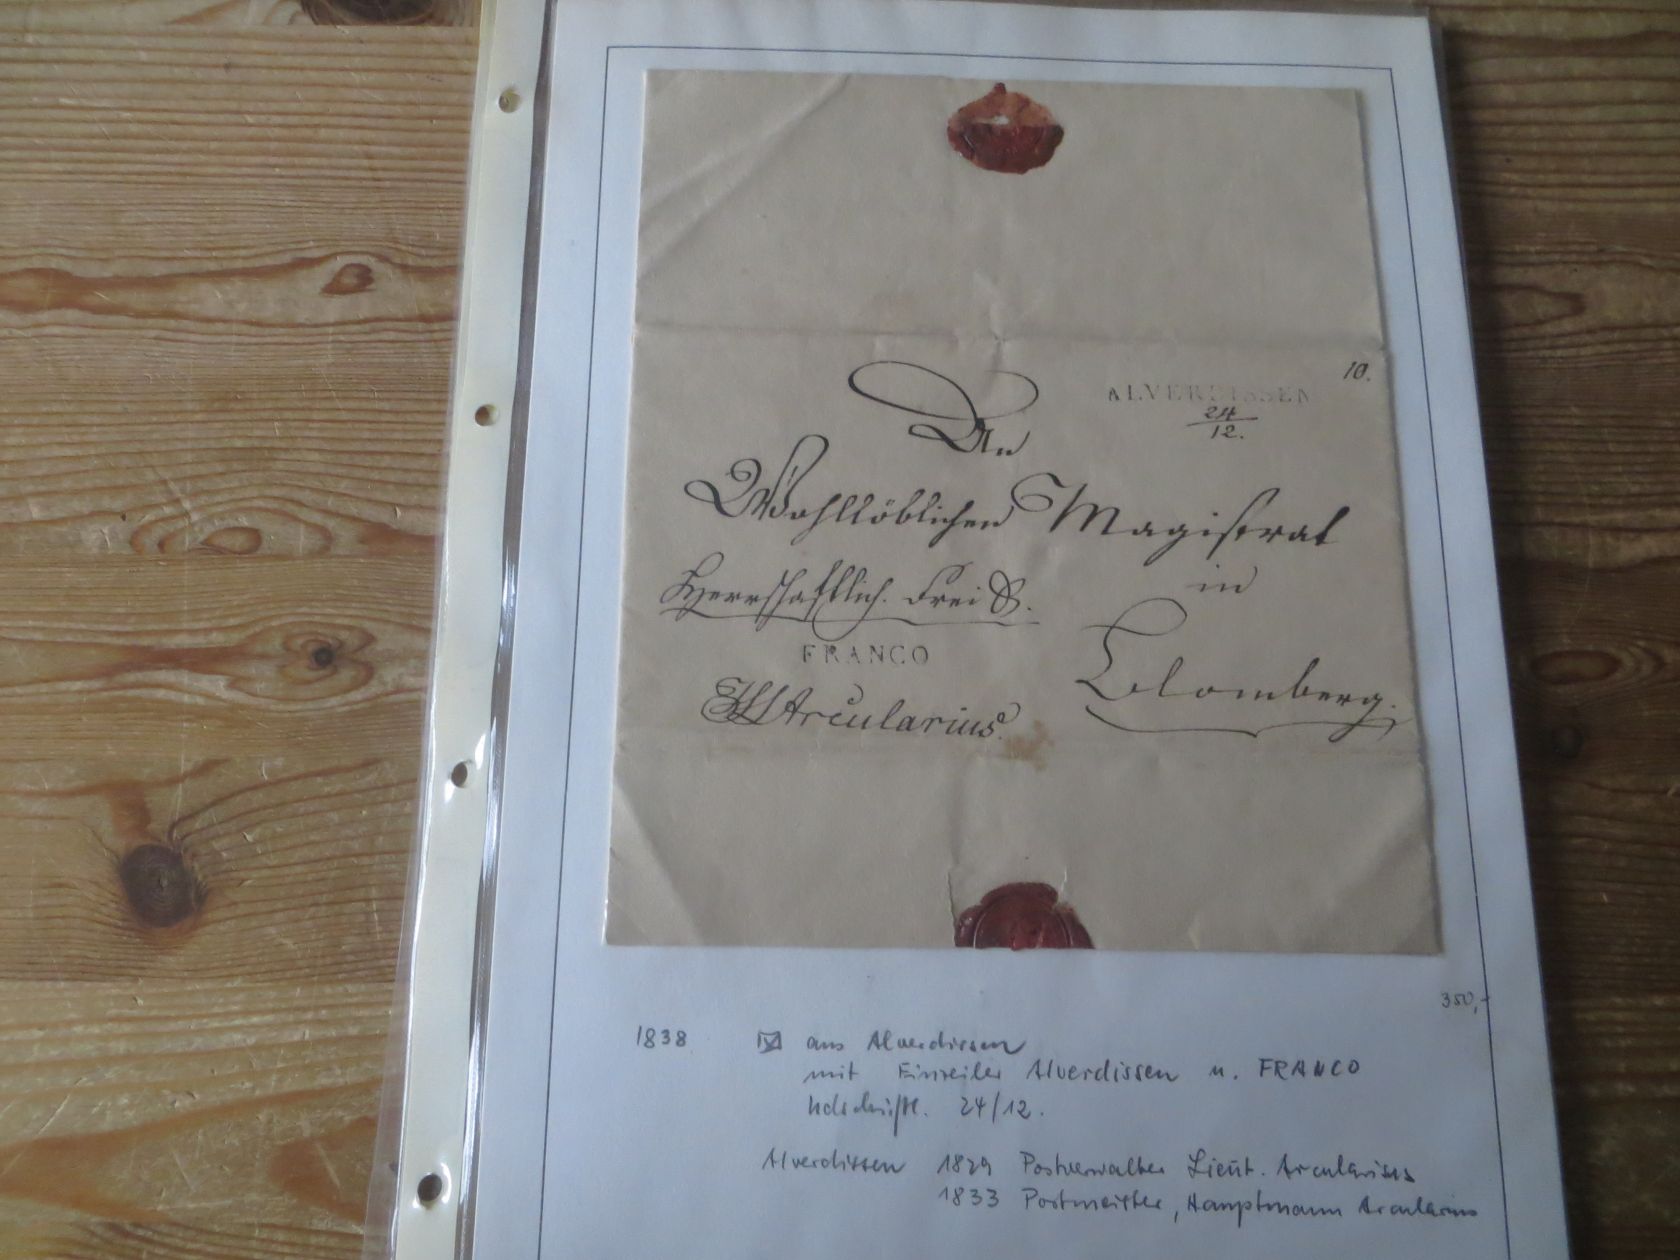 10.
ALVERDISSEN
24/12.
An
Wohllöblichen Magistrat
in
Herrschaftlich. Frei S.
FRANCO
Blomberg.
Arcularius.
350,-
1838 aus Alverdissen
mit Einzeiler Alverdissen u. FRANCO
hdschriftl. 24/12.
Alverdissen 1829 Postverwalter Lieut. Arcularius
1833 Postmeister, Hauptmann Arcularius